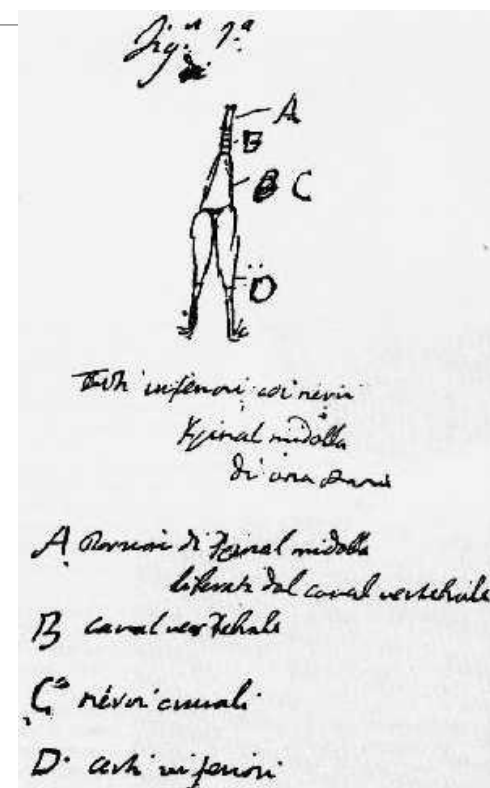 Fig.ª 1.ª
di
A
B
C
D
arti inferiori coi nervi
Spinal midolla
di una rana
A Porzioni di Spinal midolla
liberata dal canal vertebrale
B canal vertebrale
C nervi crurali
D. arti inferiori